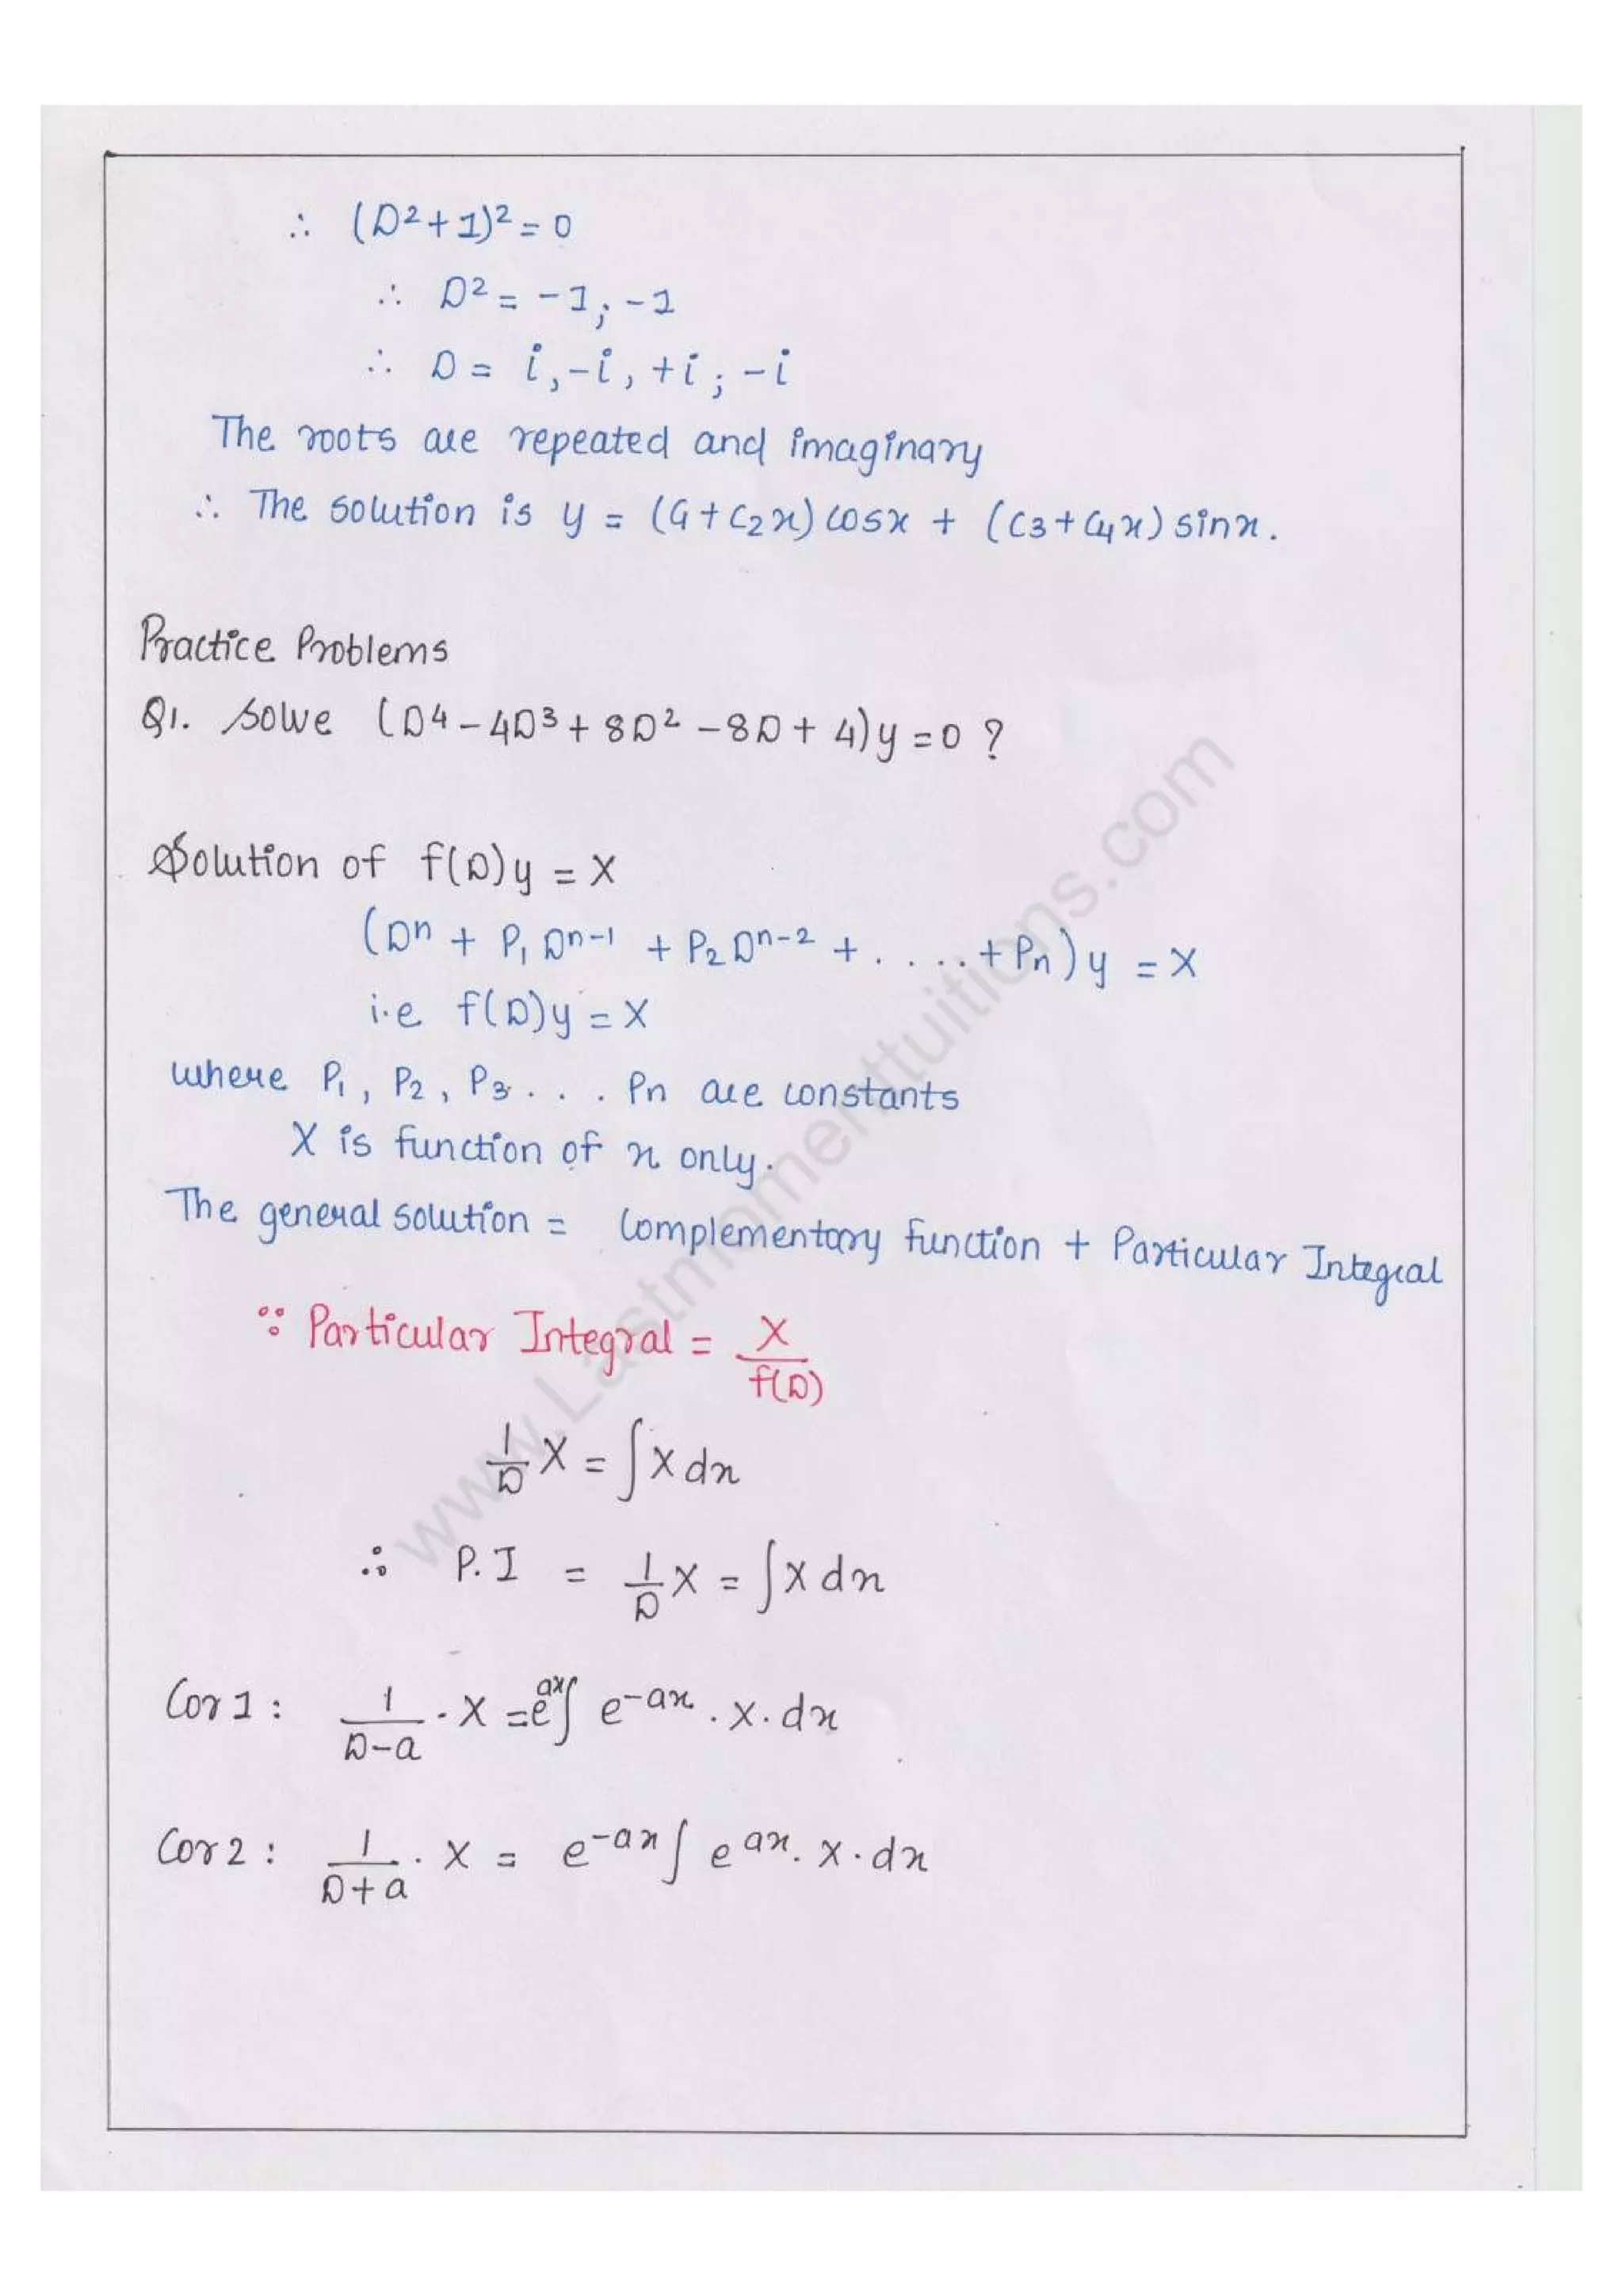 ∴ (D²+1)² = 0
∴ D² = -1, -1
∴ D = i, -i, +i, -i
The roots are repeated and imaginary
∴ The solution is y = (C₁+C₂x) cosx + (C₃+C₄x) sinx.
Practice Problems
Q1. Solve (D⁴ - 4D³ + 8D² - 8D + 4)y = 0 ?
Solution of f(D)y = X
(Dⁿ + P₁ Dⁿ⁻¹ + P₂ Dⁿ⁻² + . . . . + Pₙ) y = X
i.e f(D)y = X
where P₁, P₂, P₃ . . . Pn are constants
X is function of x only.
The general solution = Complementary function + Particular Integral
∵ Particular Integral = X/f(D)
1/D X = ∫ X dx
∴ P.I = 1/D X = ∫ X dx
Cor 1 : 1/(D-a) . X = e^ax ∫ e^-ax . X . dx
Cor 2 : 1/(D+a) . X = e^-ax ∫ e^ax . X . dx
www.Lastmomenttuitions.com